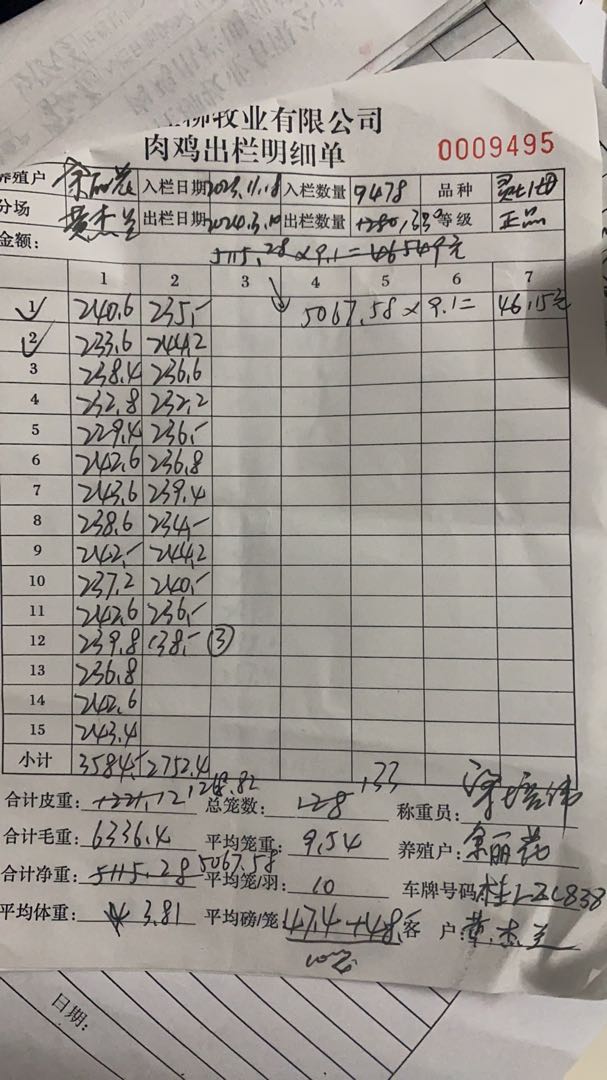 牧业有限公司
肉鸡出栏明细单
0009495
养殖户 余丽花 入栏日期 2023.11.18 入栏数量 9478 品种
分场 黄杰兰 出栏日期 2024.3.10 出栏数量 1280, 330 等级 正品
金额: 5115.28×9.1=46549元
1 2 3 4 5 6 7
1 240.6 235.- 5067.58×9.1= 46.15元
2 233.6 244.2
3 238.4 236.6
4 232.8 232.2
5 229.4 236.-
6 242.6 236.8
7 243.6 239.4
8 238.6 234.-
9 242.- 244.2
10 237.2 240.-
11 242.6 236.-
12 239.8 138.- ③
13 236.8
14 242.6
15 243.4
小计 3584.- 2752.4
合计皮重: 1221.12 1268.82 总笼数: 128 133 称重员:
合计毛重: 6336.4 平均笼重: 9.54 养殖户: 余丽花
合计净重: 5115.28 5067.58 平均笼/羽: 10 车牌号码: 桂LZC838
平均体重: 3.81 平均磅/笼: 47.4 +48. 客户: 黄杰兰
日期: